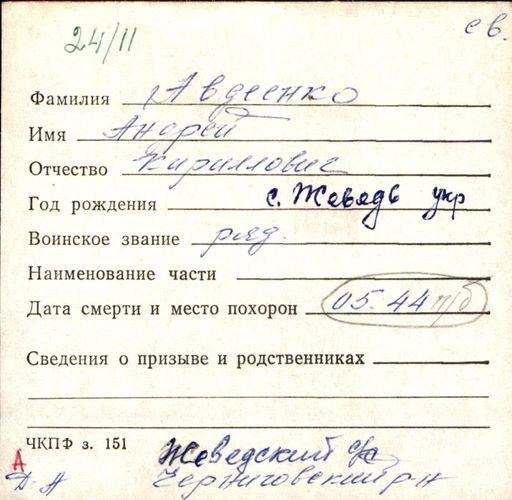 24/11
св.
Фамилия Авдеенко
Имя Андрей
Отчество Кириллович
Год рождения с. Жеведь укр
Воинское звание ряд.
Наименование части
Дата смерти и место похорон 05.44 п/б
Сведения о призыве и родственниках
ЧКПФ з. 151
Жеведский с/с
А
Д-А Черниговский р-н